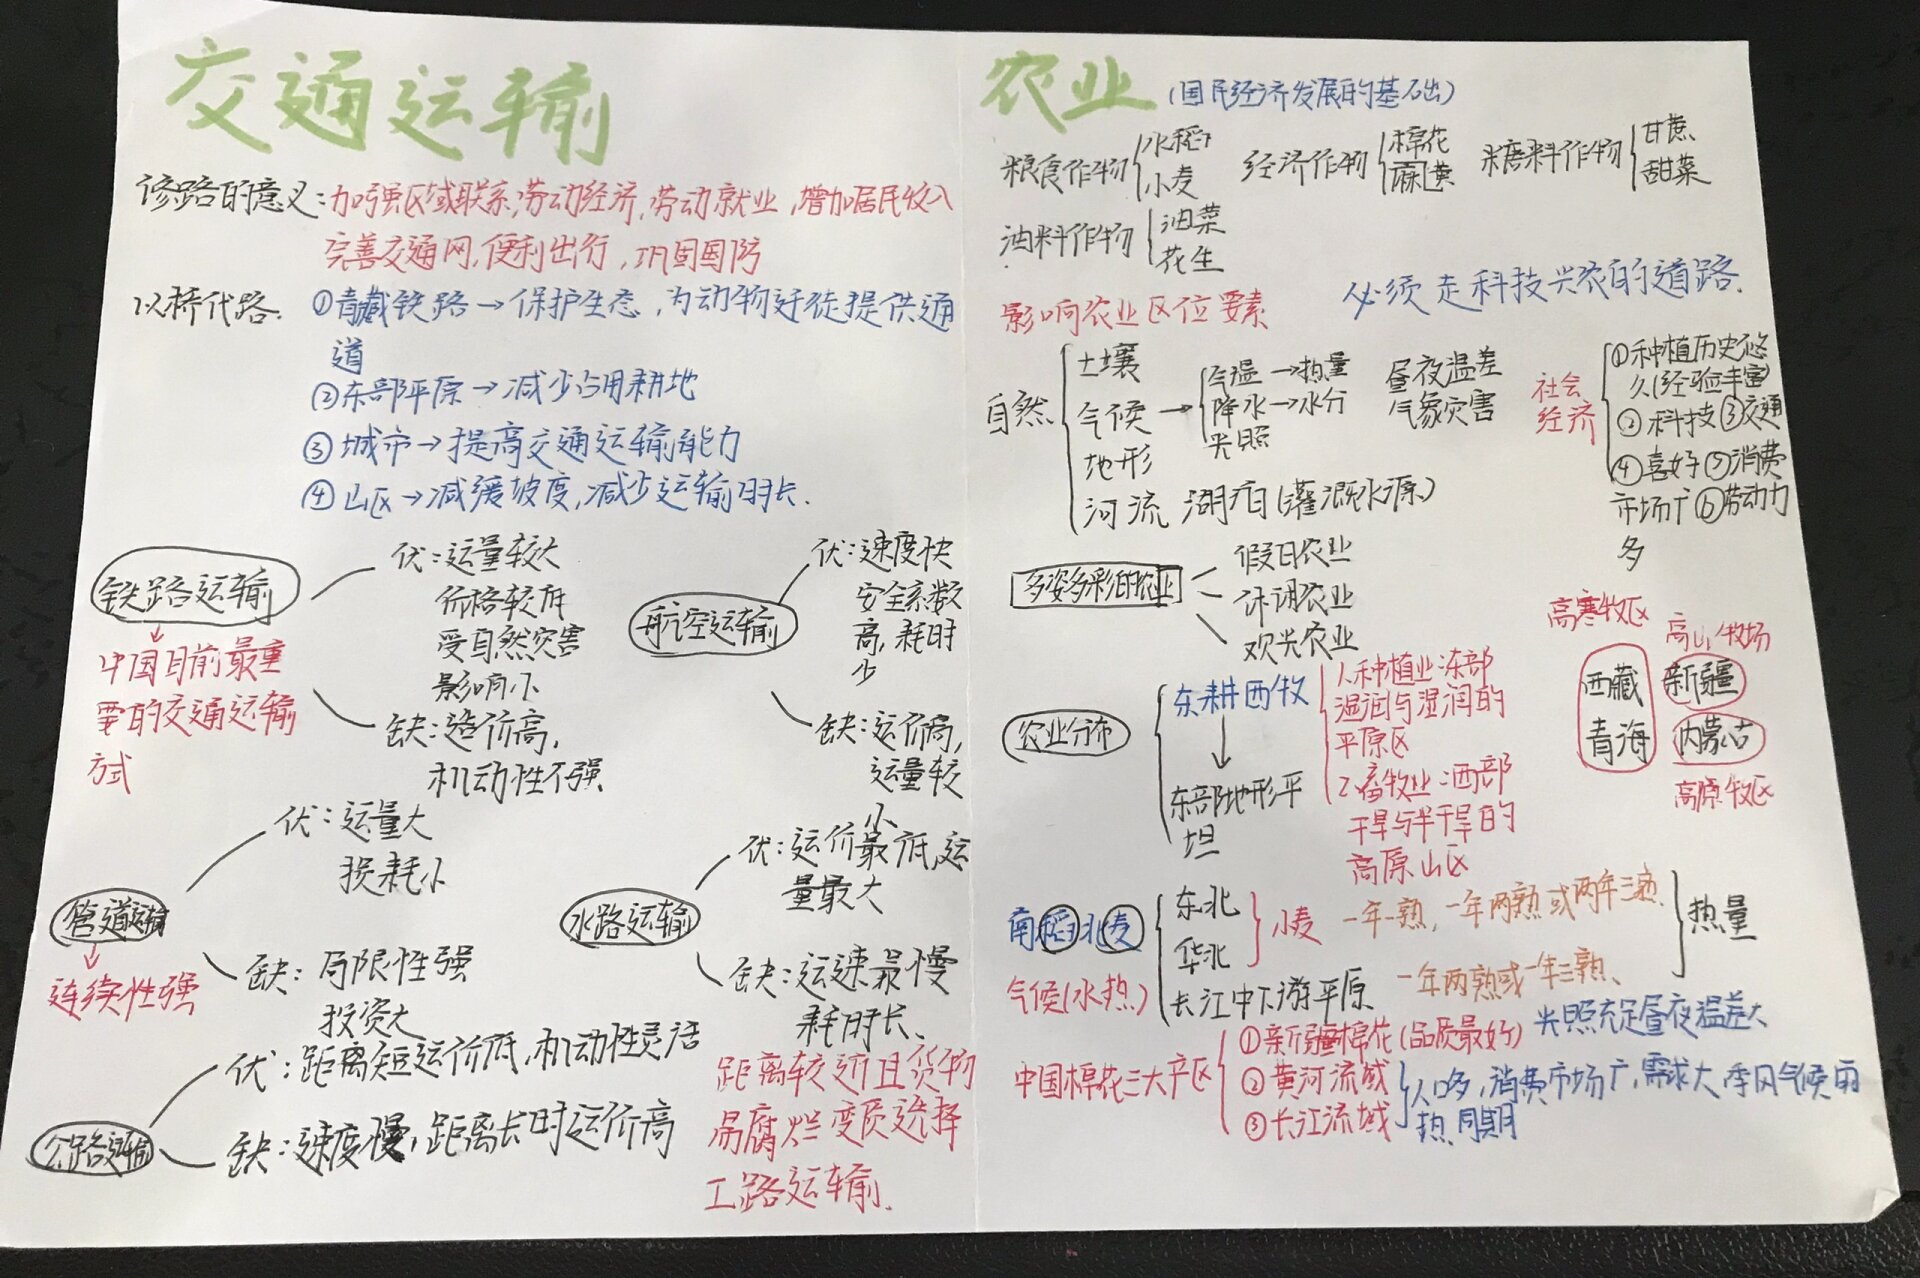 交通运输
修路的意义:加强区域联系,劳动经济,劳动就业,增加居民收入
完善交通网,便利出行,巩固国防
以桥代路.
①青藏铁路→保护生态,为动物迁徙提供通
道
②东部平原→减少占用耕地
③城市→提高交通运输能力
④山区→减缓坡度,减少运输时长.
铁路运输
中国目前最重
要的交通运输
方式
优:运量较大
价格较低
受自然灾害
影响小
缺:造价高,
机动性不强
航空运输
优:速度快
安全系数
高,耗时
少
缺:运价高,
运量较
小
管道运输
连续性强
优:运量大
损耗小
缺:局限性强
投资大
水路运输
优:运价最低,运
量最大
缺:运速最慢
耗时长.
公路运输
优:距离短运价低,机动性灵活
缺:速度慢,距离长时运价高
距离较近且货物
易腐烂变质选择
工路运输.
农业(国民经济发展的基础)
粮食作物 水稻
小麦
经济作物 棉花
麻黄
糖料作物 甘蔗
甜菜
油料作物 油菜
花生
影响农业区位要素
必须走科技兴农的道路.
自然
土壤
气候→
气温→热量
降水→水分
光照
昼夜温差
气象灾害
地形
河流 湖泊(灌溉水源)
社会
经济
①种植历史悠
久(经验丰富)
②科技③交通
④喜好⑤消费
市场广⑥劳动力
多
多姿多彩的农业
假日农业
休闲农业
观光农业
农业分布
东耕西牧
东部地形平
坦
1.种植业:东部
湿润与湿润的
平原区
2.畜牧业:西部
干旱与半干旱的
高原山区
高寒牧区
西藏
青海
高山牧场
新疆
内蒙古
高原牧区
南稻北麦
气候(水热)
东北
华北
小麦
一年一熟,一年两熟或两年三熟.
长江中下游平原
一年两熟或一年三熟、
热量
中国棉花三大产区
①新疆棉花(品质最好)
光照充足昼夜温差大
②黄河流域
③长江流域
人口多,消费市场广,需求大,季风气候雨
热同期